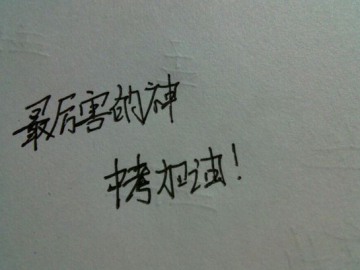 最厉害的神
中考加油！